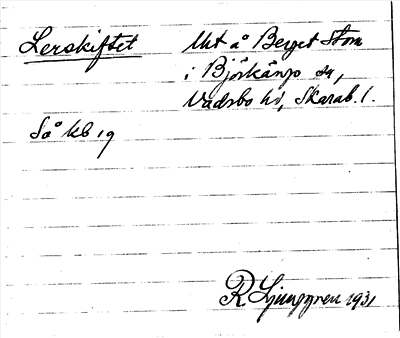 Lerskiftet Mkt å Berget Stom
i Björkängs sn,
Vadsbo hd, Skarab. l.
Så kb 19
R Ljunggren 1931